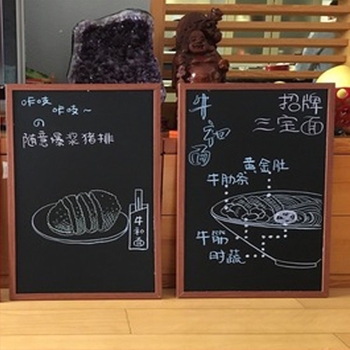 咔吱
咔吱～
の
随意爆浆猪排
牛和面
牛和面
招牌
三宝面
黄金肚
牛肋条
牛筋
时蔬